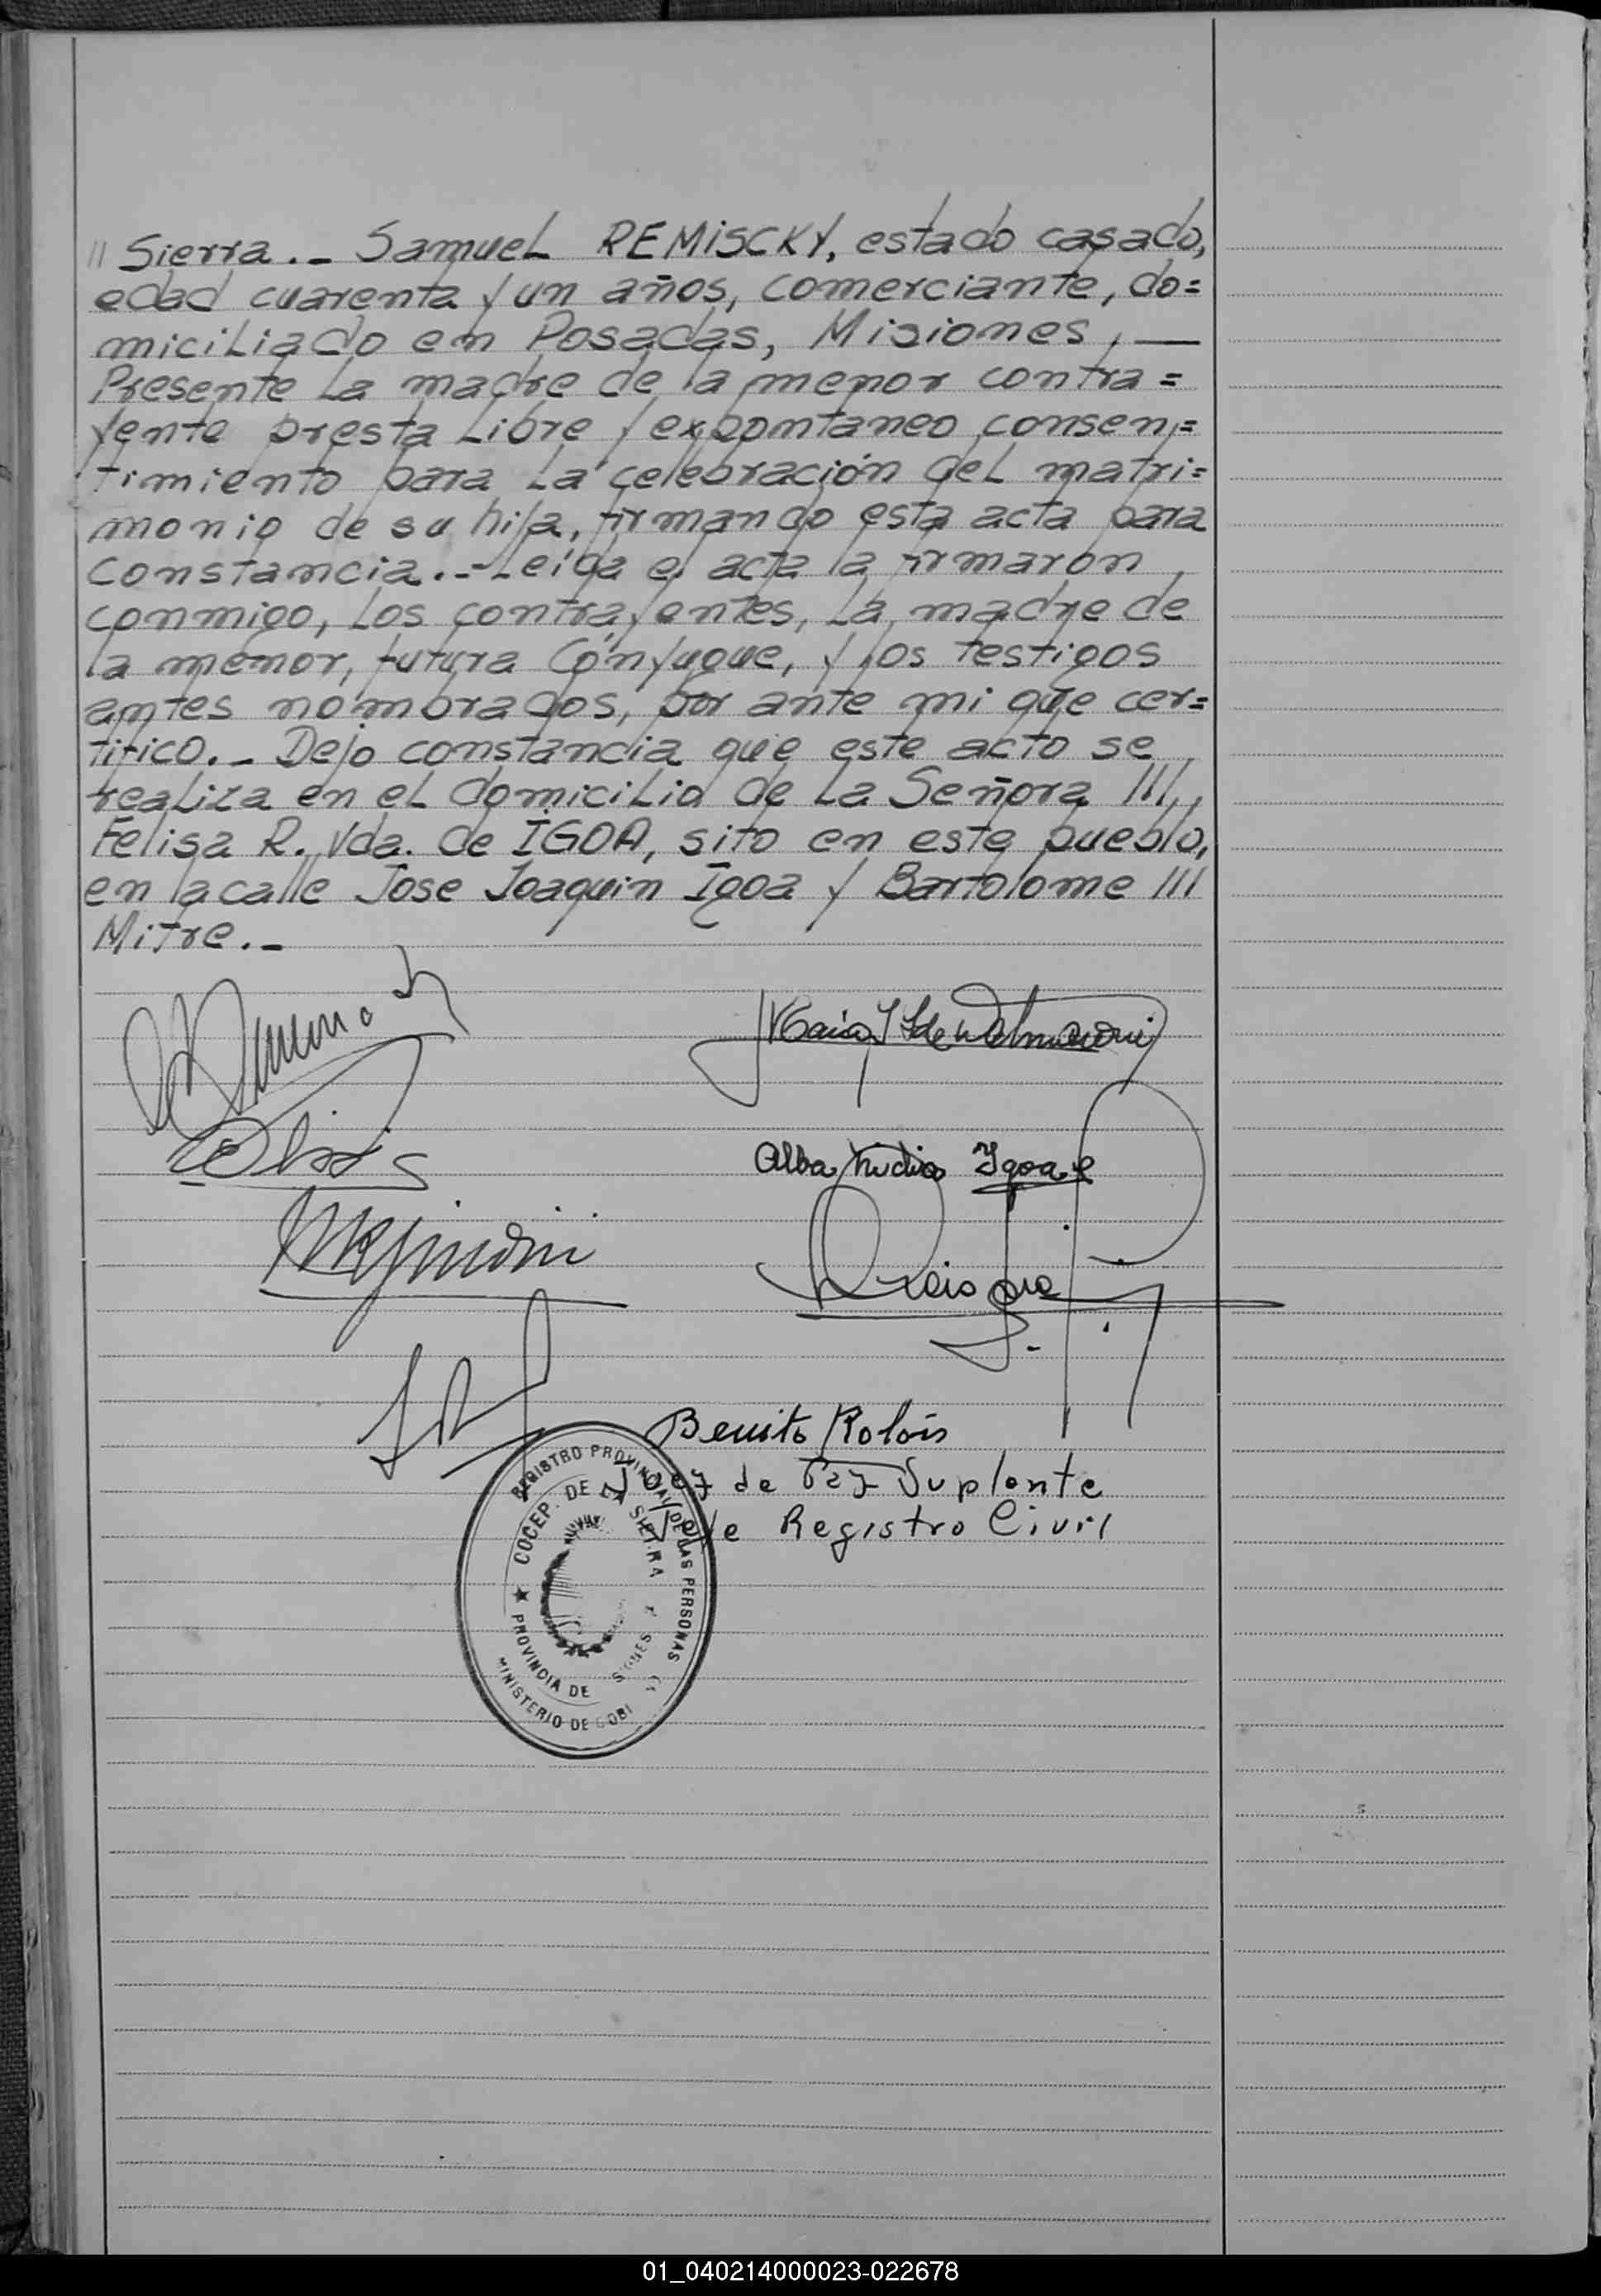 " Sierra._ Samuel REMISCKY, estado casado,
edad cuarenta y un años, comerciante, do=
miciliado en Posadas, Misiones, —
Presente la madre de la menor contra=
yente presta libre y expontaneo consen=
timiento para la celebración del matri=
monio de su hija, firmando esta acta para
constancia.-Leída el acta la firmaron
conmigo, los contrayentes, la madre de
la menor, futura Cónyugue, y los testigos
antes nombrados, por ante mi que cer=
tifico._ Dejo constancia que este acto se
realiza en el domicilio de la Señora ///,,
Felisa R. Vda. de IGOA, sito en este pueblo,
en la calle Jose Joaquin Igoa y Bartolome ///
Mitre._
Alba Nidia Igoa
Benito Rolón
Juez de Paz Suplente
Jefe Registro Civil
REGISTRO PROVINCIAL DE LAS PERSONAS
COCEP. DE LA SIERRA
PROVINCIA DE
MINISTERIO DE GOBI
01_040214000023-022678